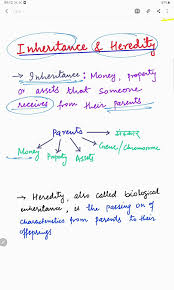 Inheritance & Heredity
→ Inheritance: Money, property
or assets that someone
receives from their parents
Parents
Money Property Assets Gene/Chromosome
→ Heredity, also called biological
inheritance, is the passing on of
characteristics from parents to their
offsprings